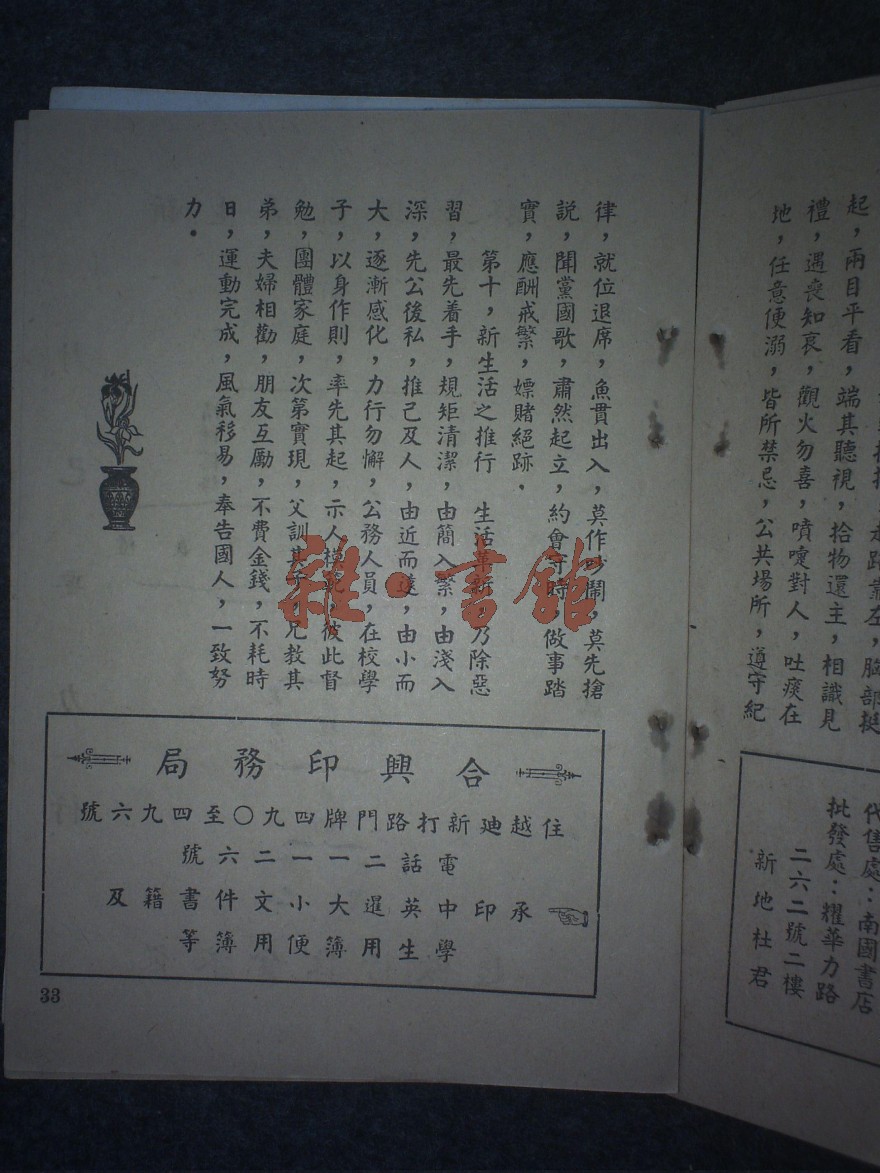 走路靠左，胸部挺
起，兩目平看，端其聽視，拾物還主，相識見
禮，遇喪知哀，觀火勿喜，噴嚏對人，吐痰在
地，任意便溺，皆所禁忌，公共場所，遵守紀
代售處：南國書店
批發處：耀華力路
二六二號二樓
新地杜君
律，就位退席，魚貫出入，莫作吵鬧，莫先搶
說，聞黨國歌，肅然起立，約會守時，做事踏
實，應酬戒繁，嫖賭絕跡．
第十，新生活之推行　生活革新，乃除惡
習，最先着手，規矩清潔，由簡入繁，由淺入
深，先公後私，推己及人，由近而遠，由小而
大，逐漸感化，力行勿懈，公務人員，在校學
子，以身作則，率先其起，示人模範，彼此督
勉，團體家庭，次第實現，父訓其子，兄教其
弟，夫婦相勸，朋友互勵，不費金錢，不耗時
日，運動完成，風氣移易，奉告國人，一致努
力．
合興印務局
住越廸新打路門牌四九〇至四九六號
電話二一二六號
承印中英暹大小文件書籍及
學生用簿便用簿等
33
雜·書館